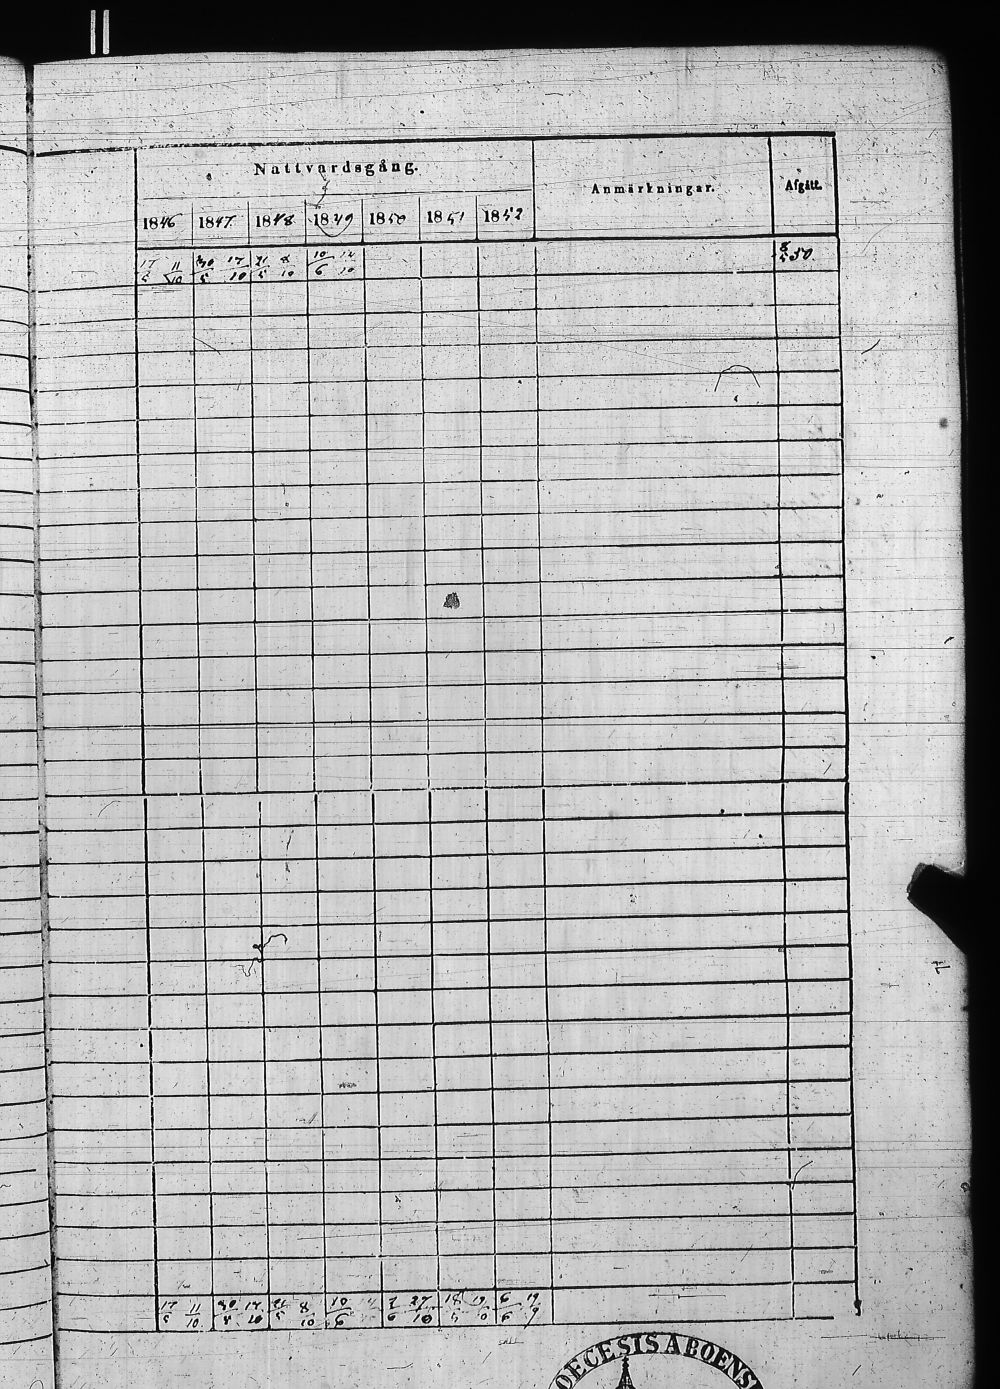 Nattvardsgång. Anmärkningar. Afgått.
1846 1847. 1848 1849 1850 1851 1852
17/5 11/10 30/5 17/10 21/5 8/10 10/6 8/5 50.
17/5 11/10 30/5 17/10 21/5 8/10 10/6 2/6 27/10 6/6 19/9
OECESIS ABOENS